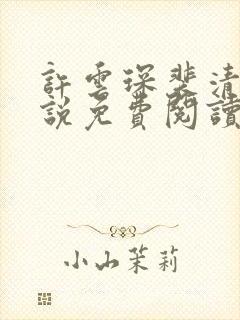 許雲琛裴清
說免費閱讀
小山茉莉